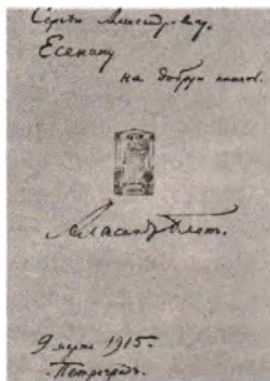 Сергѣю Александровичу
Есенину
на добрую память.
Александр Блок.
9 марта 1915.
Петроградъ.